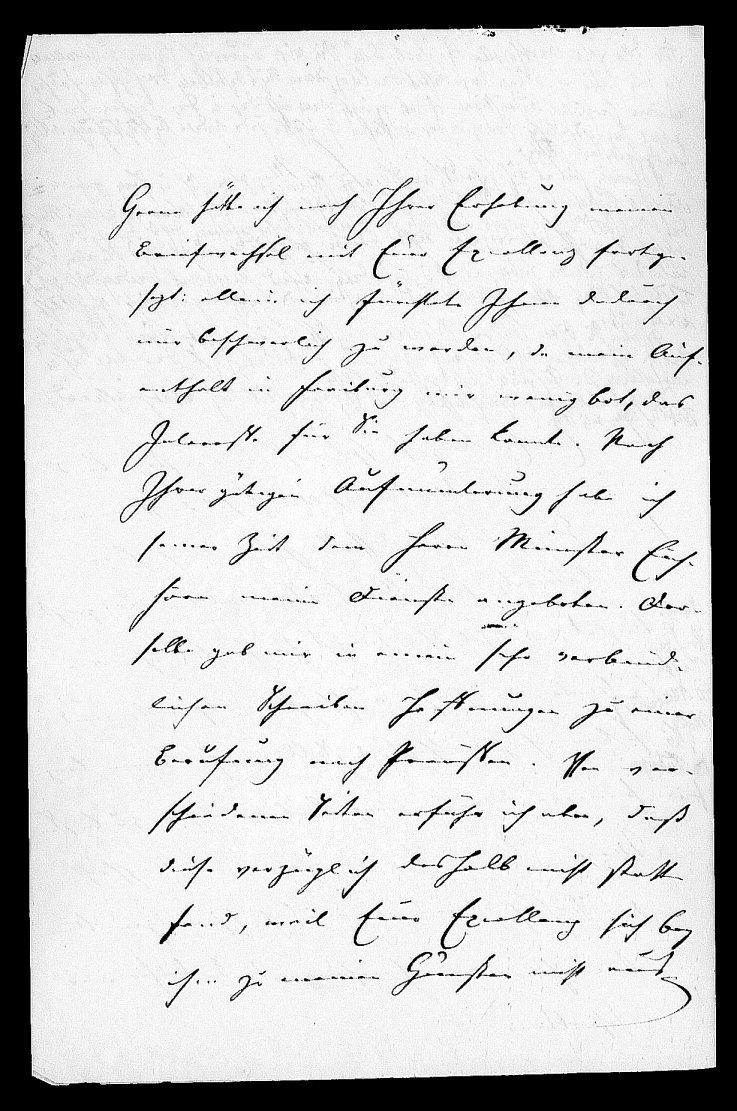 Gerne hätte ich nach Ihrer Erhebung meinen
Briefwechsel mit Euer Exzellenz fortge-
setzt: allein ich fürchtete Ihnen dadurch
nur beschwerlich zu werden, da mein Auf-
enthalt in Freiburg mir wenig bot, das
Interesse für Sie haben konnte. Nach
Ihrer gütigen Aufmunterung habe ich
seiner Zeit dem Herrn Minister Eich-
horn meine Dienste angeboten. Der-
selbe gab mir in einem sehr verbind-
lichen Schreiben Hoffnungen zu einer
Berufung nach Preußen. Von ver-
schiedenen Seiten erfuhr ich aber, daß
diese vorzüglich deshalb nicht statt
fand, weil Euer Exzellenz sich bey
ihm zu meinen Gunsten nicht aus-